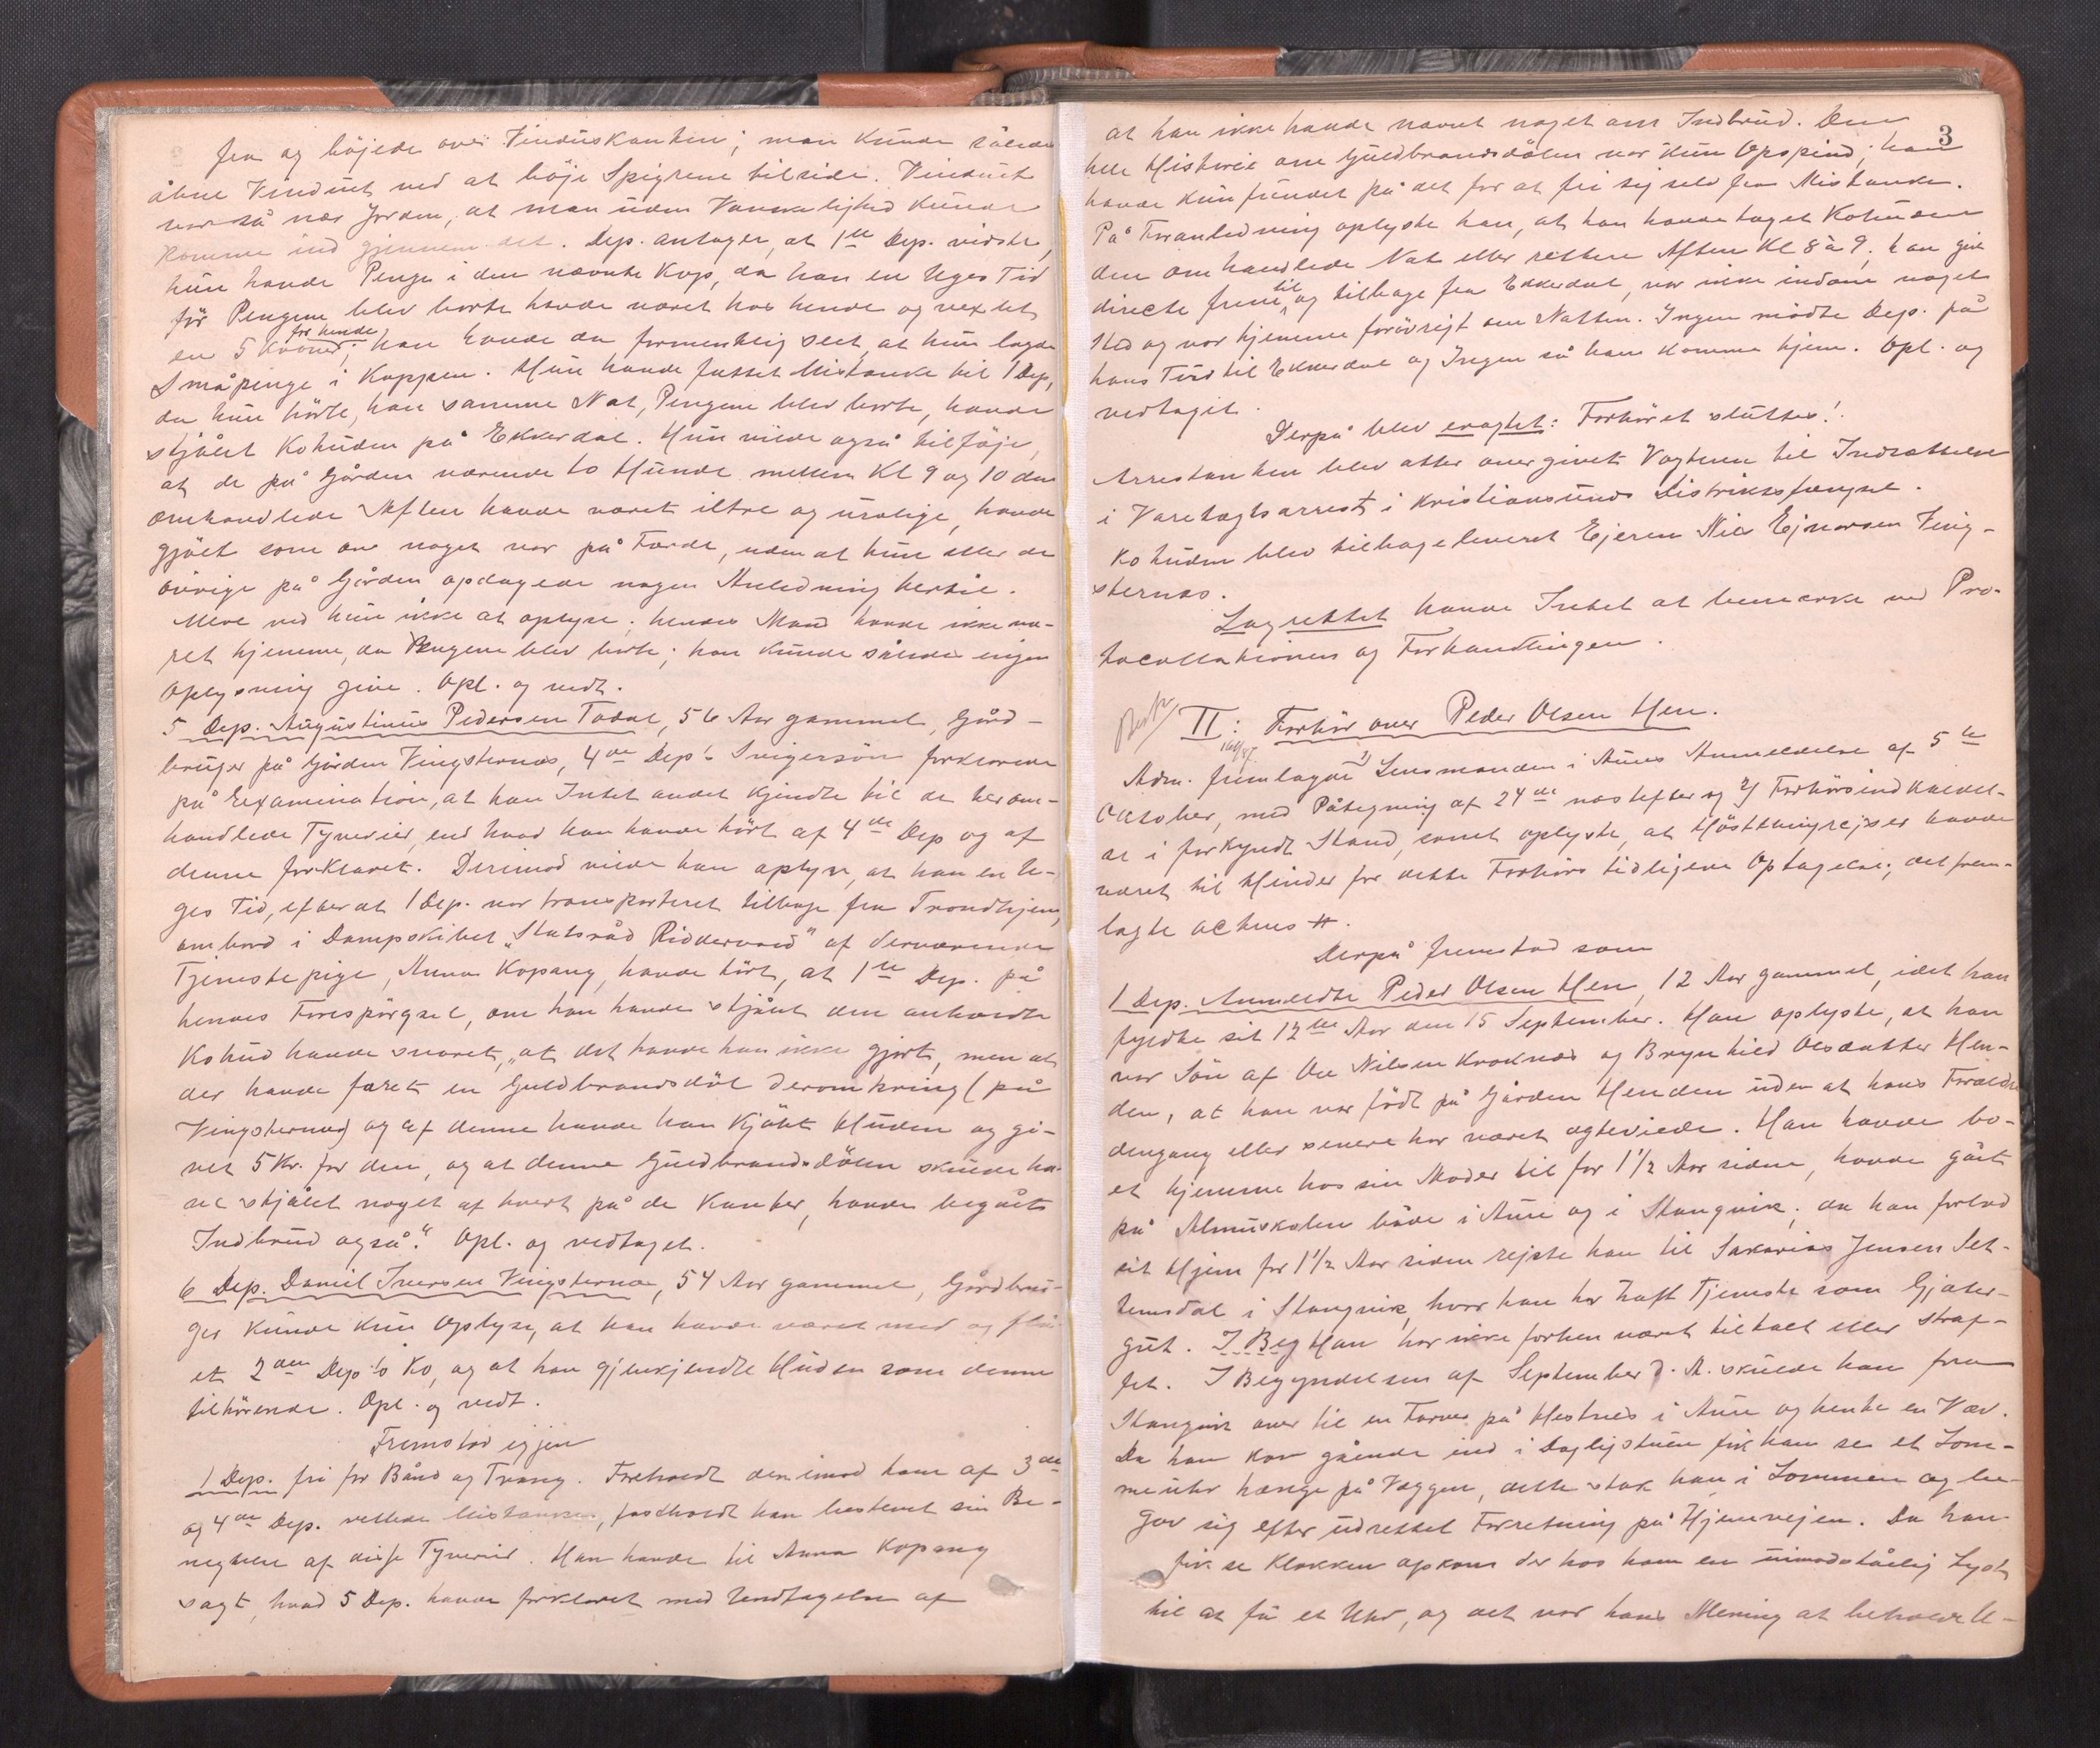 fra og böjede over Vinduskanten; man kunde således
åbne Vinduet ved at böje Spigrene tilside. Vinduet
var så nær Jorden, at man uden Vanskelighed kunde
komme ind gjennem det. Dep. antager, at 1ste Dep. vidste,
hun havde Penge i den nævnte Kop, da han en Uges Tid
för Pengene blev borte havde været hos hende og vexlet
for hende
en 5 Kroner; han havde da formentlig seet, at hun lagde
Småpenge i Koppen. Hun havde fattet Mistanke til 1 Dep,
da hun hörte, han samme Nat, Pengene blev borte, havde
stjålet Kohuden på Ekkerdal. Hun vilde også tilföje,
at de på Gården værende to Hunde mellem Kl 9 og 10 den
omhandlede Aften havde været iltre og urolige, havde
gjöet som om noget var på Færde, uden at hun eller de
övrige på Gården opdagede nogen Anledning hertil.
Mere ved hun ikke at oplyse; hendes Mand havde ikke væ-
ret hjemme, da Pengene blev borte; han kunde således ingen
Oplysning give. Opl. og vedt.
5 Dep. Augustinus Pedersen Todal, 56 Aar gammel, Gård-
bruger på Gården Vingsternæs, 4de Dep's Svigersön forklarede
på Examination, at han Intet andet kjendte til de herom-
handlede Tyverier, end hvad han havde hört af 4de Dep og af
denne forklaret. Derimod vilde han oplyse, at han en U-
ges Tid, efter at 1 Dep. var transporteret tilbage fra Trondhjem,
ombord i Dampskibet "Statsråd Riddervold" af derværende
Tjenestepige, Anna Kopang, havde hört, at 1ste Dep. på
hendes Forespörgsel, om han havde stjålet den anholdte
Kohud havde svaret, "at det havde han ikke gjort, men at
der havde faret en Guldbrandsdöl deromkring (på
Vingsternæs) og af denne havde han kjöbt Huden og gi-
vet 5 Kr. for den, og at denne Guldbrandsdölen skulde ha-
ve stjålet noget af hvert på de Kanter, havde begået
Indbrud også". Opl. og vedtaget.
6 Dep. Daniel Iversen Vingsternæs, 54 Aar gammel, Gårdbru-
ger kunde kun Oplyse, at han havde været med og flå-
et 2den Dep's Ko, og at han gjenkjendte Huden som denne
tilhörende. Opl. og vedt.
Fremstod igjen
1 Dep. fri for Bånd og Tvang. Foreholdt den imod ham af 3die
og 4de Dep. rettede Mistanke, fastholdt han bestemt sin Be-
negtelse af disse Tyverier. Han havde til Anna Kopang
sagt, hvad 5 Dep. havde forklaret med Undtagelse af
3
at han ikke havde nævnt noget om Indbrud. Den
hele Historie om Guldbrandsdölen var kun Opspind; han
havde kun fundet på det for at fri sig selv fra Mistanke.
På Foranledning oplyste han, at han havde taget Kohuden
den omhandlede Nat eller rettere Aften Kl 8 à 9; han gik
til
directe frem og tilbage fra Ekkerdal, var ikke indom noget
Sted og var hjemme forövrigt om Natten. Ingen mödte Dep. på
hans Tur til Ekkerdal og Ingen så ham komme hjem. Opl. og
vedtaget.
Derpå blev eragtet: Forhöret sluttes!
Arrestanten blev atter overgivet Vagten til Indsættelse
i Varetægtsarrest i Kristiansunds Distriktsfængsel.
Kohuden blev tilbageleveret Ejeren Nils Ejnarsen Ving-
sternæs.
Lagrettet havde Intet at bemærke ved Pro-
tocollationen og Forhandlingen.
II: Forhör over Peder Olsen Hen.
Adm. fremlagde 1) Lensmanden i Aures Anmeldelse af 5te
Oktober, med Påtegning af 24de næstefter og 2) Forhörsindkaldel-
se i forkyndt Stand, samt oplyste, at Hösttingsrejser havde
været til Hinder for dette Forhörs tidligere Optagelse; det frem-
lagte acteres #.
Derpå fremstod som
1 Dep. Anmeldte Peder Olsen Hen, 12 Aar gammel, idet han
fyldte sit 12te Aar den 15 September. Han oplyste, at han
var Sön af Ole Nilsen Kroknæs og Brynhild Olsdatter Hen-
den, at han var födt på Gården Henden uden at hans Forældre
dengang eller senere har været ægteviede. Han havde bo-
et hjemme hos sin Moder til for 1 1/2 Aar siden, havde gået
på Almuskolen både i Aure og i Stangvik; da han forlod
sit Hjem for 1 1/2 Aar siden rejste han til Sakarias Jensen Set-
temsdal i Stangvik, hvor han har havt Tjeneste som Gjæter-
gut. I Beg Han har ikke forhen været tiltalt eller straf-
fet. I Begyndelsen af September d. A. skulde han fra
Stangvik over til en Farver på Hestnes i Aure og hente en Væv.
Da han kom gående ind i Dagligstuen fik han se et Lom-
meuhr hænge på Væggen, dette stak han i Lommen og be-
gav sig efter udrettet Forretning på Hjemvejen. Da han
fik se Klokken opkom der hos ham en uimodståelig Lyst
til at få et Uhr, og det var hans Mening at beholde U-